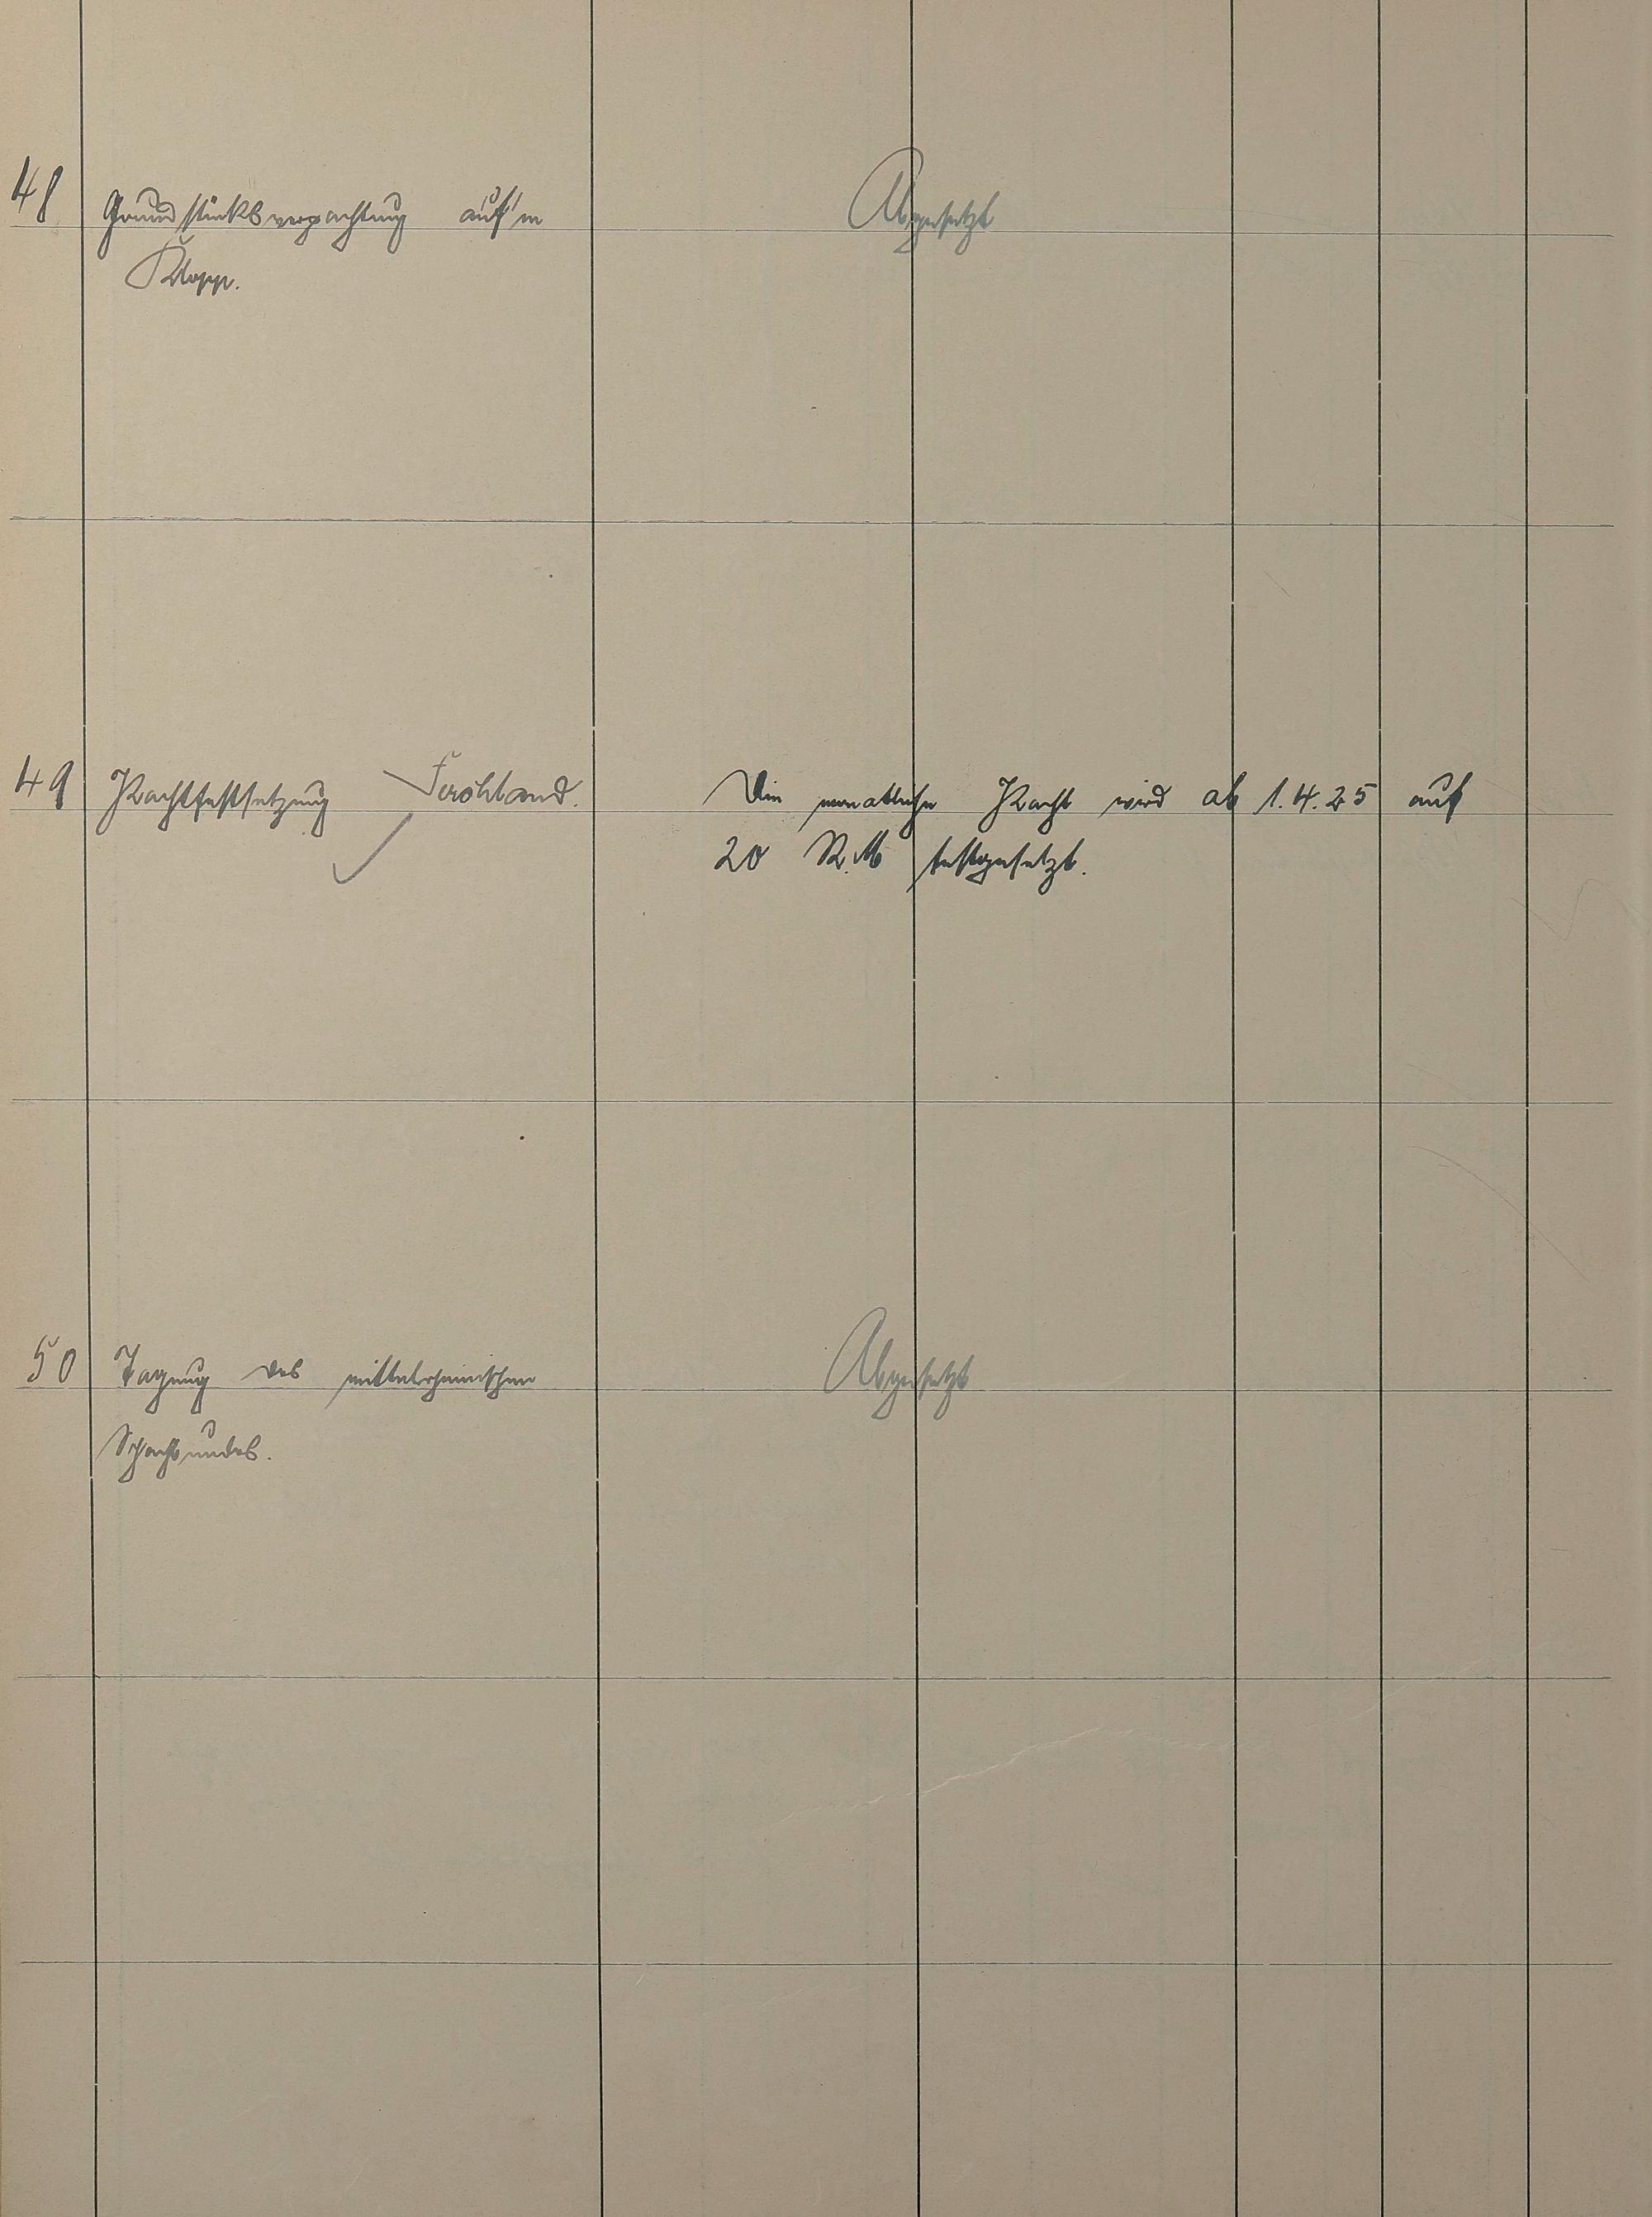 48 Grundstücksverpachtung auf'm
Klopp.
Abgesetzt
49 Pachtfestsetzung Ströhland.
Die monatliche Pacht wird ab 1.4.25 auf
20 R.M festgesetzt.
50 Tagung des mittelrheinischen
Schachbundes.
Abgesetzt